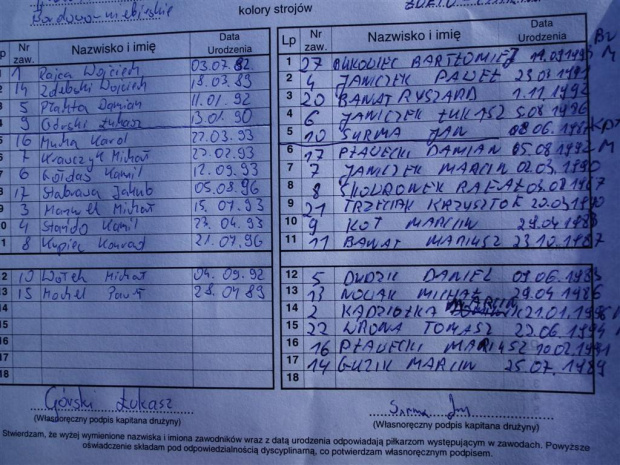 kolory strojów
Lp Nr zaw. Nazwisko i imię Data Urodzenia
1 Rajca Wojciech 03.07.82
14 Wojciech 18.03.89
5 Płachta Damian 11.01.92
9 Górski Łukasz 13.01.90
16 Mucha Karol 22.03.93
7 Krawczyk Michał 27.02.93
6 Kołdas Kamil 12.09.93
17 Stabrawa Jakub 05.08.96
3 Michał 15.07.93
4 Kamil 23.04.93
8 Kupiec Konrad 21.07.96
12 10 Wątek Michał 04.09.92
13 15 Paweł 28.04.89
14
15
16
17
18
Górski Łukasz
(Własnoręczny podpis kapitana drużyny)
Lp Nr zaw. Nazwisko i imię Data Urodzenia
1 27 BUKOWIEC BARTŁOMIEJ M
2 4 JANICZEK PAWEŁ
3 20 BANAT RYSZARD 1.11.1992
4 6 JANICZEK ŁUKASZ 5.08.1996
5 10 SURMA JAN
6 17 PŁAWECKI DAMIAN 05.08.1992 M
7 7 JANICZEK MARCIN 02.03.1980
8 8 SKOWRONEK RAFAŁ 03.07.1987
9 21 TRZECIAK KRZYSZTOF
10 9 KOT MARCIN 29.04.1988
11 11 BANAT MARIUSZ 23.10.1987
12 5 DUDZIK DANIEL 09.06.1983
13 13 NOWAK MICHAŁ 29.04.1986
14 2 KĄDZIOŁKA MARCIN 21.01.1995
15 22 WRONA TOMASZ 22.06.1994
16 16 PŁAWECKI MARIUSZ 10.02.1991
17 14 GUZIK MARCIN 25.07.1989
18
Surma Jan
(Własnoręczny podpis kapitana drużyny)
Stwierdzam, że wyżej wymienione nazwiska i imiona zawodników wraz z datą urodzenia odpowiadają piłkarzom występującym w zawodach. Powyższe
oświadczenie składam pod odpowiedzialnością dyscyplinarną, co potwierdzam własnoręcznym podpisem.